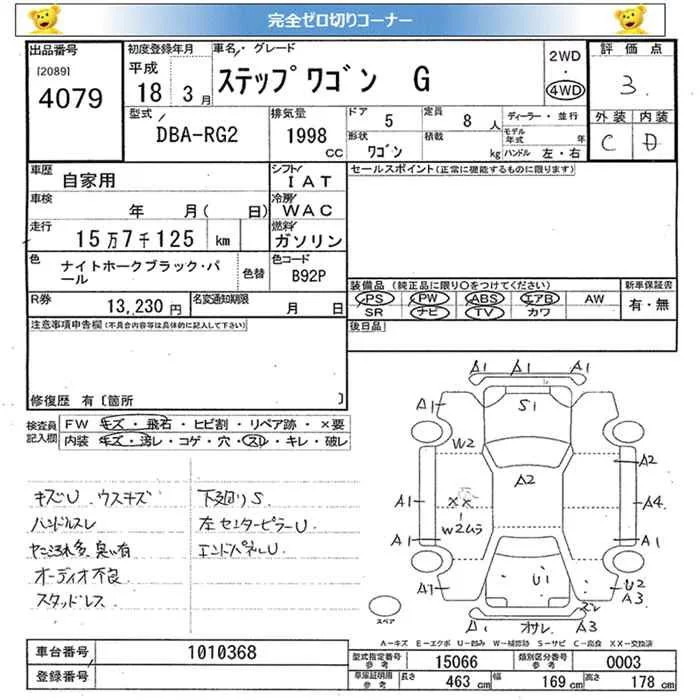 完全ゼロ切りコーナー
出品番号 初度登録年月 車名・グレード 2WD 評価点
[2089] 平成 ステップワゴン G ・
4079 18 3月 4WD 3.
型式 排気量 ドア 5 定員 8人 ディーラー・並行 外装 内装
DBA-RG2 1998 cc 形状 ワゴン 積載 kg モデル年式 年 C D
ハンドル 左・右
車歴 自家用 シフト IAT セールスポイント(正常に機能するものに限ります)
車検 年 月( 日) 冷房 WAC
走行 15万7千125 km 燃料 ガソリン
色 ナイトホークブラック・パール 色替 色コード B92P
装備品(純正品に限り○をつけてください) 新車保証書
PS PW ABS エアB AW 有・無
SR ナビ TV カワ
R券 13,230円 名変通知期限 月 日
後日品
注意事項申告欄(不具合内容等は具体的に記入して下さい)
修復歴 有〔箇所 〕
検査員記入欄 FW キズ・飛石・ヒビ割・リペア跡・×要
内装 キズ・汚レ・コゲ・穴・スレ・キレ・破レ
キズU ウスキズ 下廻りS
ハンドルスレ 左センターピラーU
ヤニ汚れ多 臭い有 エンドパネルU
オーディオ不良
スタッドレス
A1 A1 A1
A1 S1 A1
W2 A2
A2
A1 XX A4
W2ムラ
A1 A1
A1 U1 U2
スレ A3
A1 オサレ A3
スペア
A-キズ E-エクボ U-凹み W-補修跡 S-サビ C-腐食 XX-交換済
車台番号 1010368
型式指定番号 参考 15066 類別区分番号 参考 0003
登録番号
車庫証明用 参考 長さ 463 cm 幅 169 cm 高さ 178 cm